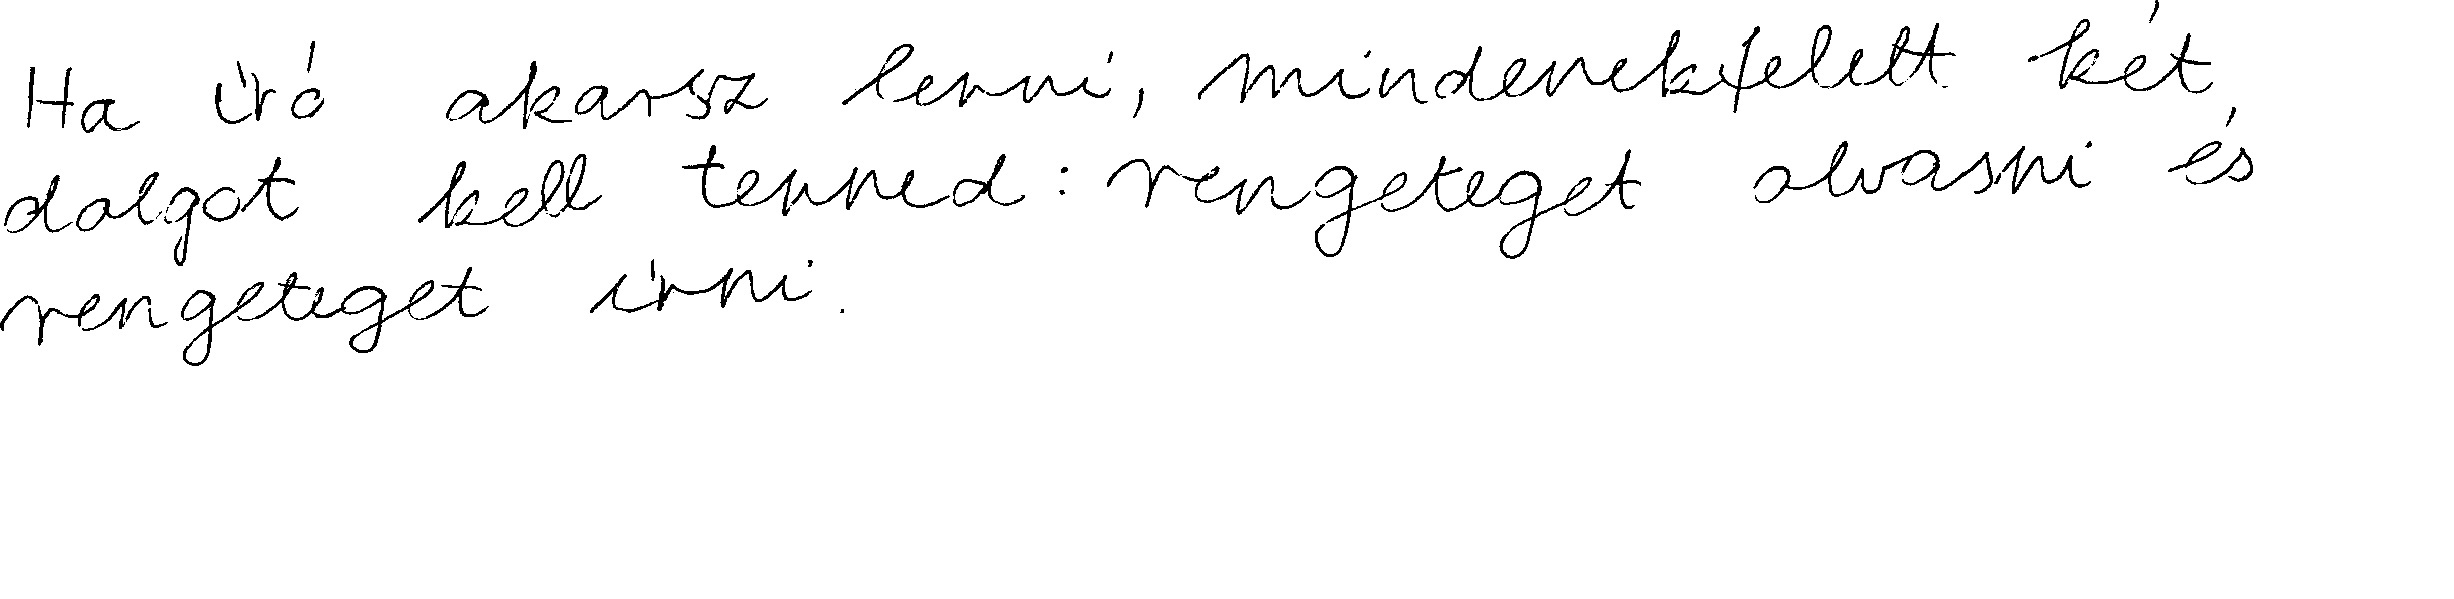 Ha író akarsz lenni, mindenekfelett két
dolgot kell tenned: rengeteget olvasni és
rengeteget írni.